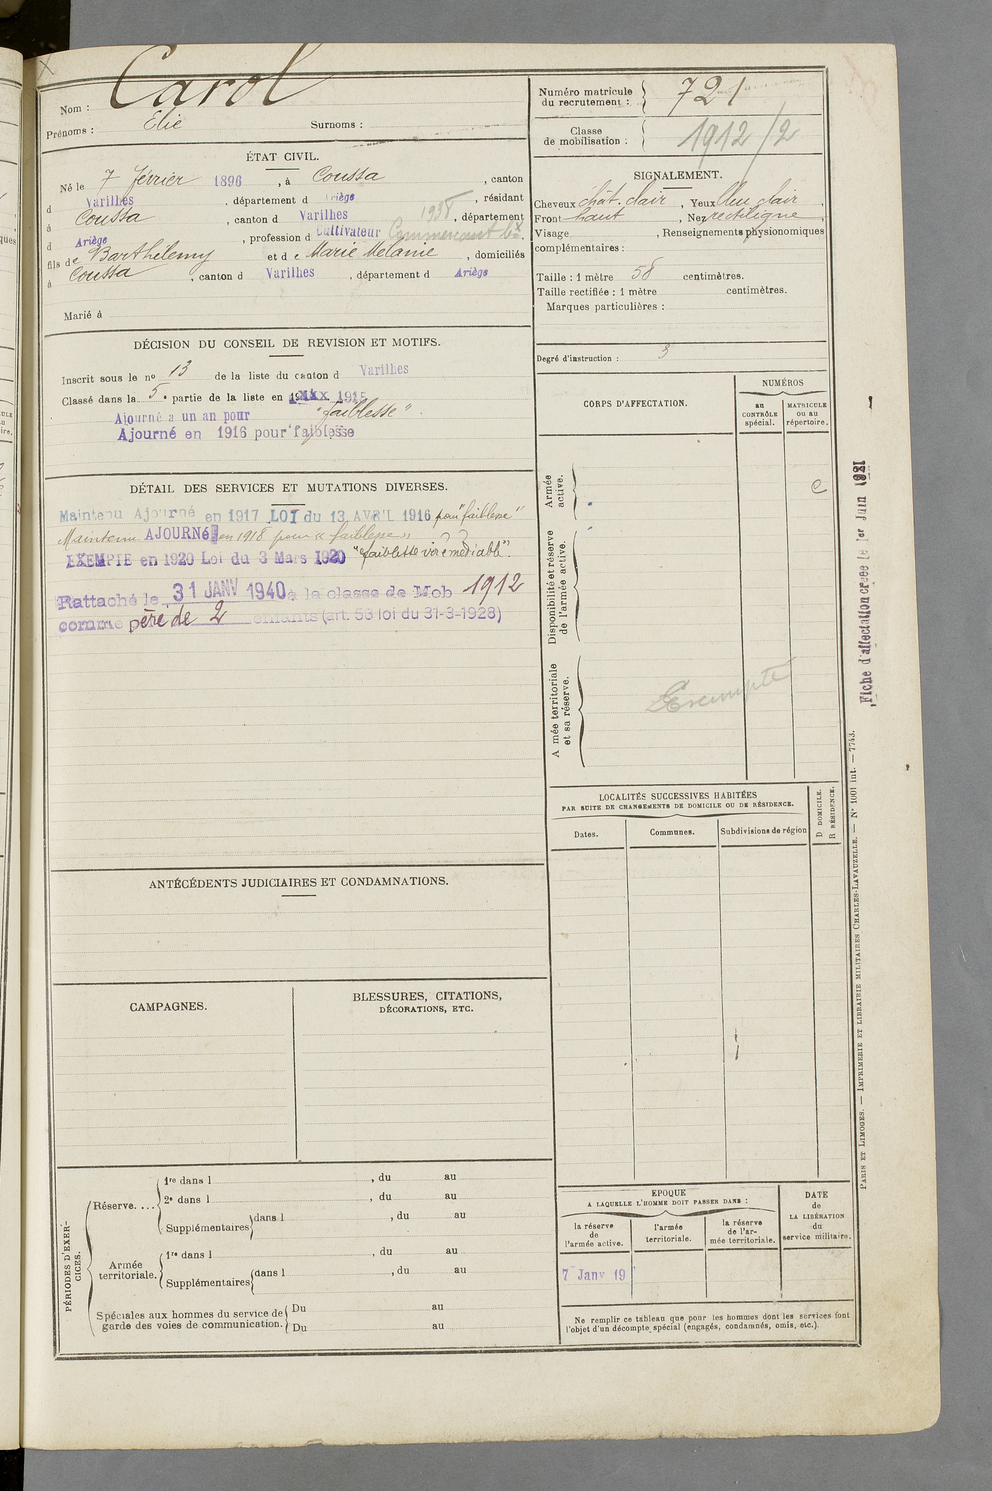 Nom : Carol
Prénoms : Elie Surnoms :
Numéro matricule du recrutement : 721
Classe de mobilisation : 1912/2
ÉTAT CIVIL.
Né le 7 février 1896, à Coussa, canton
d Varilhes, département d Ariège, résidant
à Coussa, canton d Varilhes 1938, département
d Ariège, profession d Cultivateur
fils de Barthélemy et de Marie Mélanie, domiciliés
à Coussa, canton d Varilhes, département d Ariège
Marié à
SIGNALEMENT.
Cheveux chât. clair, Yeux bleu clair,
Front haut, Nez rectiligne,
Visage, Renseignements physionomiques
complémentaires :
Taille : 1 mètre 58 centimètres.
Taille rectifiée : 1 mètre centimètres.
Marques particulières :
Degré d'instruction : 3
DÉCISION DU CONSEIL DE REVISION ET MOTIFS.
Inscrit sous le no 13 de la liste du canton d Varilhes
Classé dans la 5e partie de la liste en 1915
Ajourné a un an pour "faiblesse".
Ajourné en 1916 pour faiblesse
DÉTAIL DES SERVICES ET MUTATIONS DIVERSES.
Maintenu Ajourné en 1917 LOI du 13 AVRIL 1916 pour "faiblesse"
Maintenu AJOURNé en 1918 pour "faiblesse"
EXEMPTE en 1920 Loi du 3 Mars 1920 "faiblesse irrémédiable".
Rattaché le 31 JANV 1940 à la classe de Mob 1912
comme père de 2 enfants (art. 58 loi du 31-3-1928)
CORPS D'AFFECTATION.
NUMÉROS
au CONTRÔLE spécial.
MATRICULE ou au répertoire.
Armée active.
Disponibilité et réserve de l'armée active.
A mée territoriale et sa réserve.
Exempté
LOCALITÉS SUCCESSIVES HABITÉES
PAR SUITE DE CHANGEMENTS DE DOMICILE OU DE RÉSIDENCE.
Dates. Communes. Subdivisions de région
D DOMICILE.
R RÉSIDENCE.
ANTÉCÉDENTS JUDICIAIRES ET CONDAMNATIONS.
CAMPAGNES.
BLESSURES, CITATIONS,
DÉCORATIONS, ETC.
PÉRIODES D'EXERCICES.
Réserve....
1re dans l , du au
2e dans l , du au
Supplémentaires dans l , du au
Armée territoriale.
1re dans l , du au
Supplémentaires dans l , du au
Spéciales aux hommes du service de
garde des voies de communication.
Du au
Du au
EPOQUE
A LAQUELLE L'HOMME DOIT PASSER DANS :
la réserve de l'armée active.
l'armée territoriale.
la réserve de l'armée territoriale.
DATE de LA LIBÉRATION du service militaire.
7 Janv 19
Ne remplir ce tableau que pour les hommes dont les services font
l'objet d'un décompte spécial (engagés, condamnés, omis, etc.).
Fiche d'affectation créée le 1er Juin 1921
PARIS ET LIMOGES. — IMPRIMERIE ET LIBRAIRIE MILITAIRES CHARLES-LAVAUZELLE. — No 1001 int. — 7743.